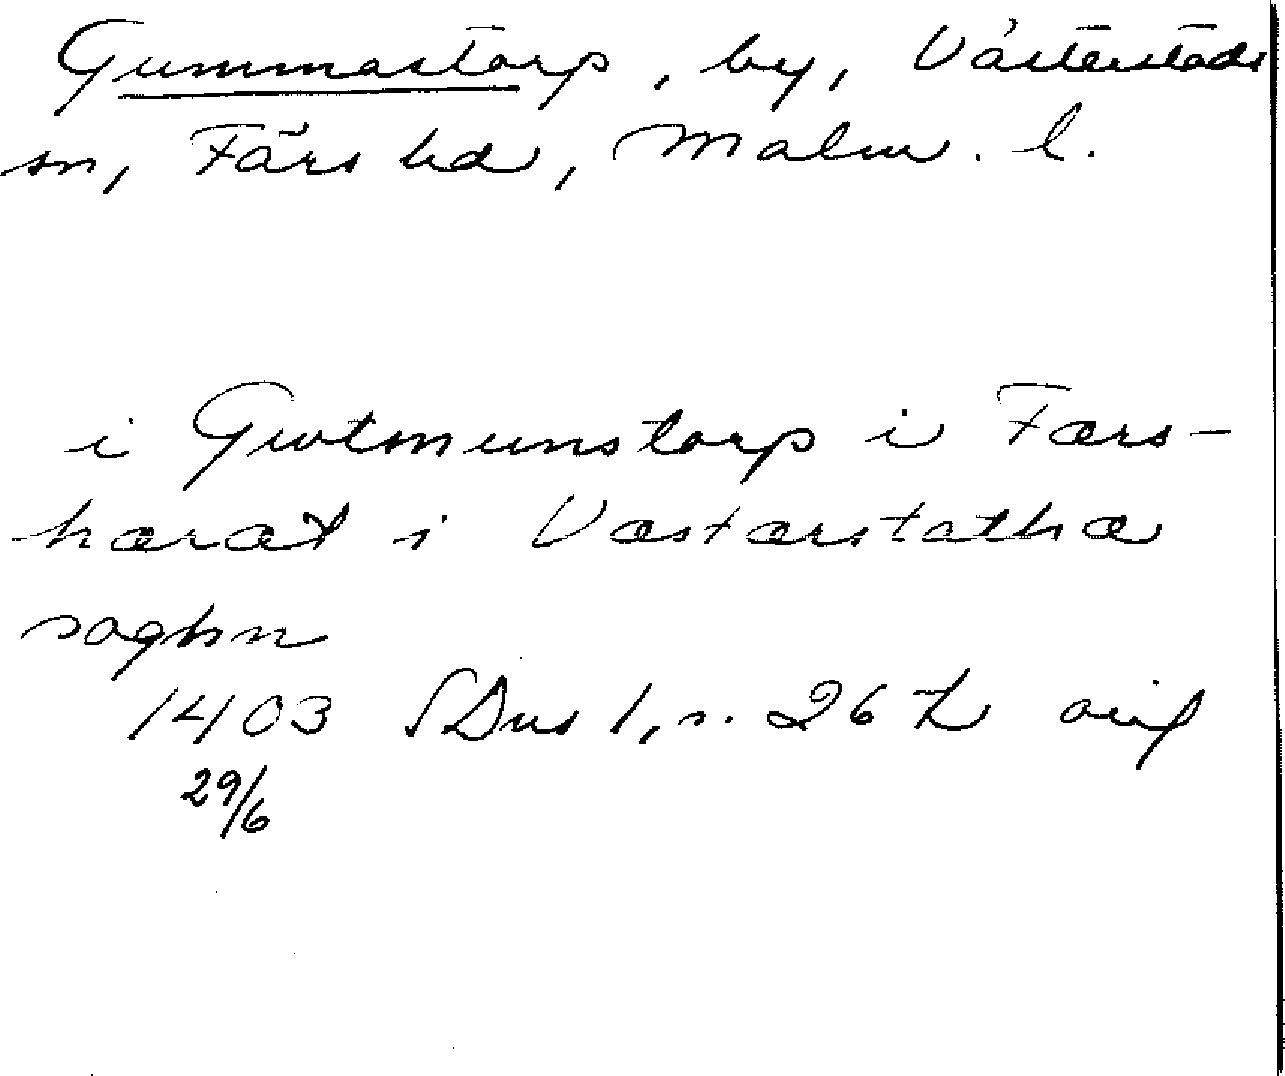 Gummastorp, by, Västerstads
sn, Färs hd, Malm. l.
i Gwtmunstorp i Færs-
hæræt i Væstærstathæ
soghn
1403 SDns 1, s. 262 avs
29/6